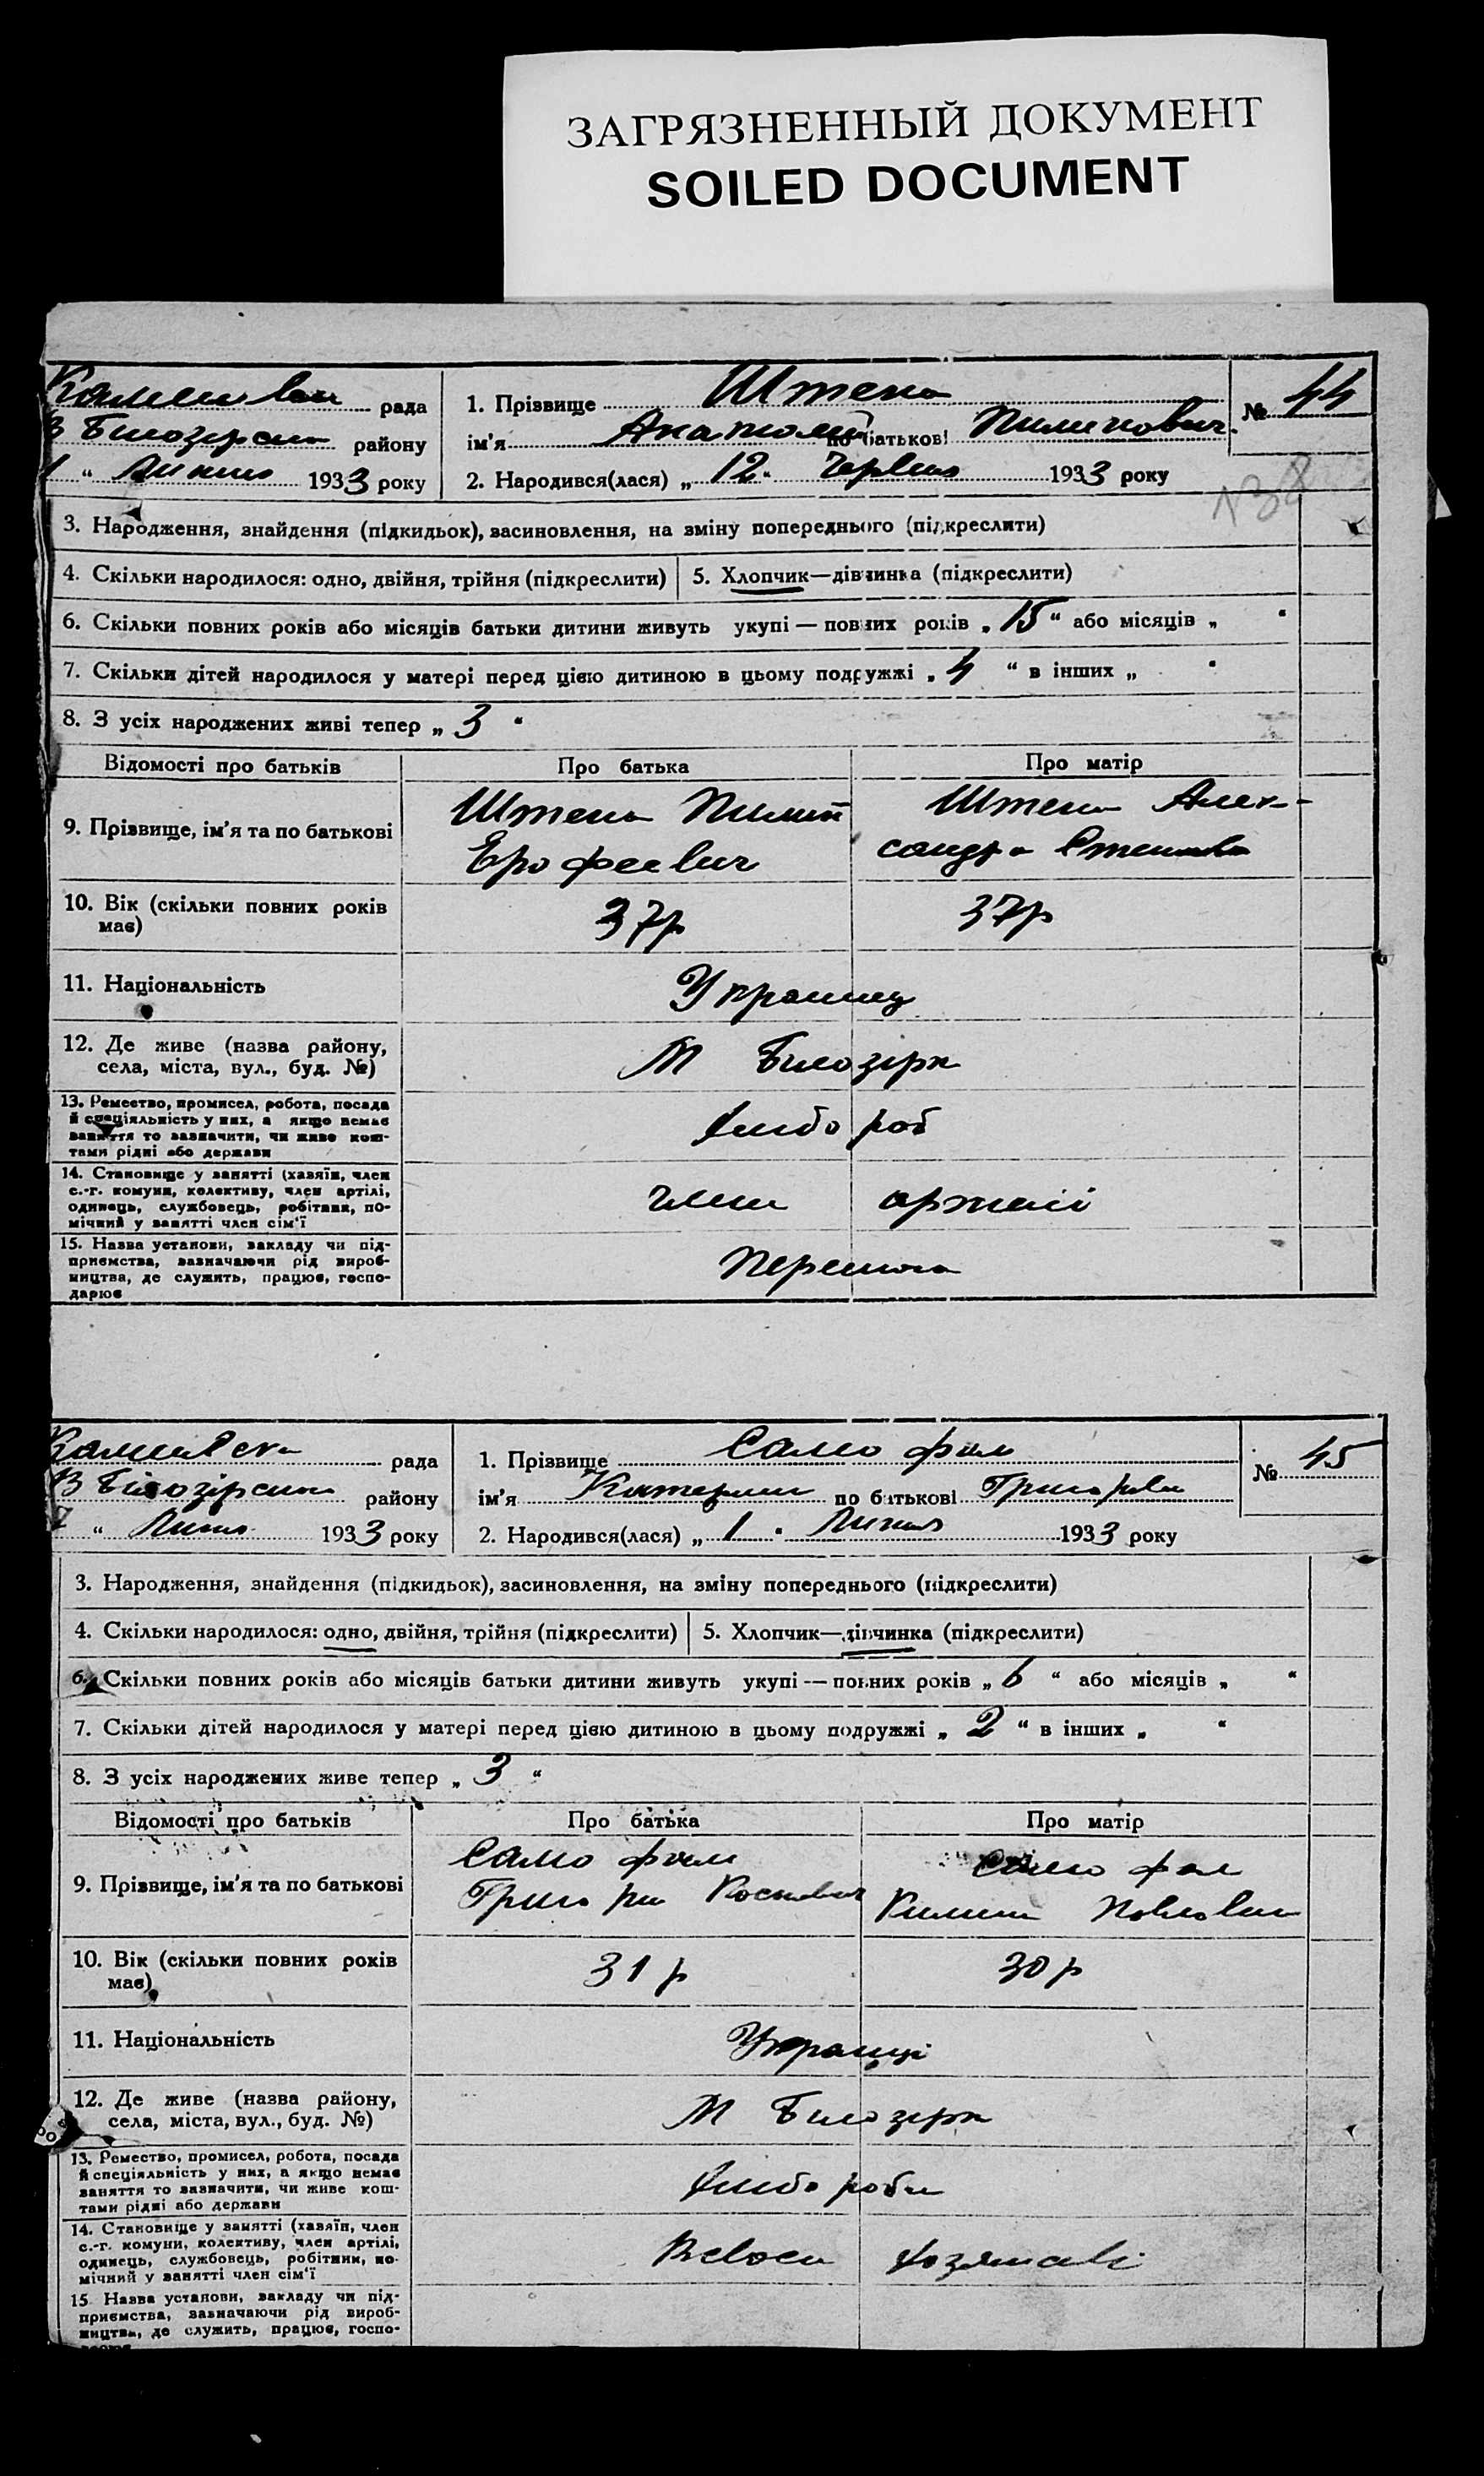 ЗАГРЯЗНЕННЫЙ ДОКУМЕНТ
SOILED DOCUMENT
рада
1. Прізвище Штепа
№ 44
району
ім'я Анатолий по батькові Пилипович
1 " Липня 1933 року
2. Народився(лася) „ 12 " Червня 1933 року
3. Народження, знайдення (підкидьок), засиновлення, на зміну попереднього (підкреслити)
4. Скільки народилося: одно, двійня, трійня (підкреслити)
5. Хлопчик—дівчинка (підкреслити)
6. Скільки повних років або місяців батьки дитини живуть укупі — повних років „ 15 “ або місяців „ “
7. Скільки дітей народилося у матері перед цією дитиною в цьому подружжі „ 4 “ в інших „ “
8. З усіх народжених живі тепер „ 3 “
Відомості про батьків
Про батька
Про матір
9. Прізвище, ім'я та по батькові
Штепа Пилип
Ерофеевич
Штепа Алек-
сандра
10. Вік (скільки повних років
має)
37р
37р
11. Національність
Украинец
12. Де живе (назва району,
села, міста, вул., буд. №)
М Билозірк
13. Ремество, промисел, робота, посада
й спеціяльність у них, а якщо немає
заняття то зазначити, чи живе кош-
тами рідні або держави
хлибороб
14. Становище у занятті (хазяїн, член
с.-г. комуни, колективу, член артілі,
одинець, службовець, робітник, по-
мічний у занятті член сім'ї
член артелі
15. Назва установи, закладу чи під-
приємства, зазначаючи рід вироб-
ництва, де служить, працює, госпо-
дарює
рада
1. Прізвище Самофал
№ 45
району
ім'я Катерина по батькові
7 " Липня 1933 року
2. Народився(лася) „ 1 " Липня 1933 року
3. Народження, знайдення (підкидьок), засиновлення, на зміну попереднього (підкреслити)
4. Скільки народилося: одно, двійня, трійня (підкреслити)
5. Хлопчик—дівчинка (підкреслити)
6. Скільки повних років або місяців батьки дитини живуть укупі — повних років „ 6 “ або місяців „ “
7. Скільки дітей народилося у матері перед цією дитиною в цьому подружжі „ 2 “ в інших „ “
8. З усіх народжених живе тепер „ 3 “
Відомості про батьків
Про батька
Про матір
9. Прізвище, ім'я та по батькові
Самофал
Самофал
10. Вік (скільки повних років
має)
31 р
30 р
11. Національність
Украинці
12. Де живе (назва району,
села, міста, вул., буд. №)
М Билозірк
13. Ремество, промисел, робота, посада
й спеціяльність у них, а якщо немає
заняття то зазначити, чи живе кош-
тами рідні або держави
хлибороби
14. Становище у занятті (хазяїн, член
с.-г. комуни, колективу, член артілі,
одинець, службовець, робітник, по-
мічний у занятті член сім'ї
15 Назва установи, закладу чи під-
приємства, зазначаючи рід вироб-
ництва, де служить, працює, госпо-